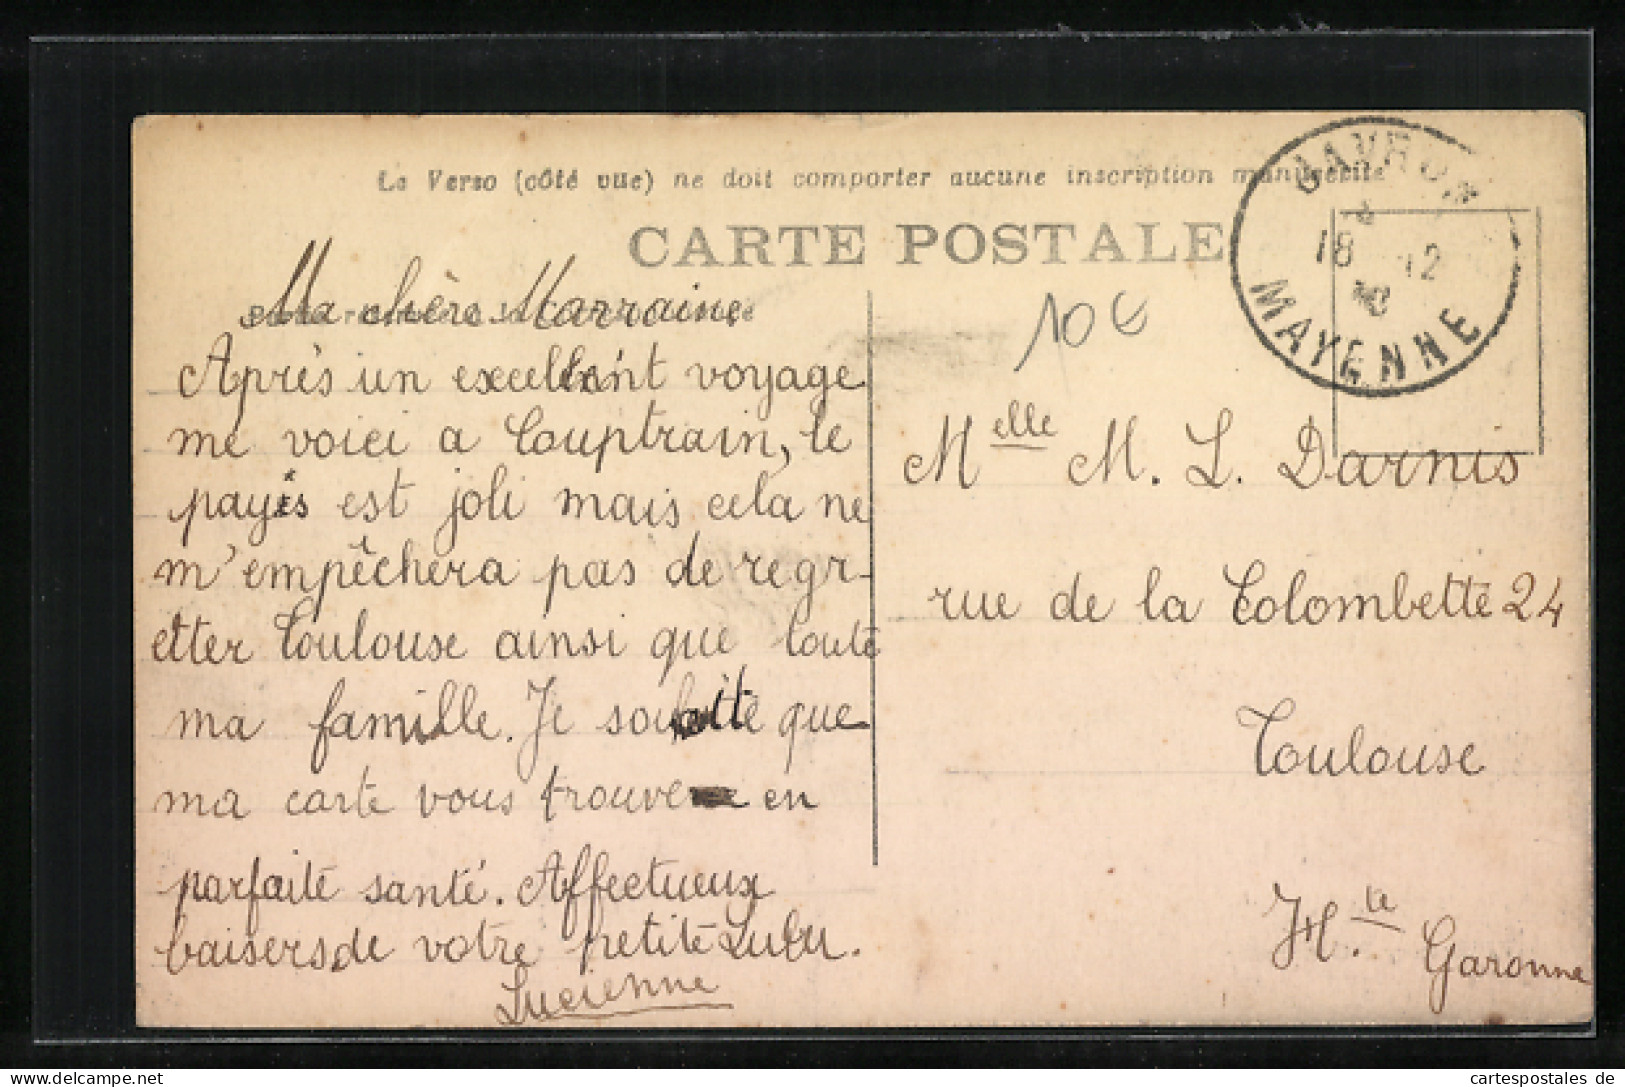 Le Verso (côté vue) ne doit comporter aucune inscription manuscrite
CARTE POSTALE
MAYENNE
18 12
10 €
Ma chère Marraine
Après un excellent voyage
me voici a Couptrain, le
payis est joli mais cela ne
m'empêchera pas de regr-
etter Toulouse ainsi que toute
ma famille. Je souhaite que
ma carte vous trouve en
parfaite santé. Affectueux
baisers de votre petite Lulu.
Lucienne
Melle M. L. Darnis
rue de la Colombette 24
Toulouse
Hte. Garonne
delcampe.net
cartespostales de